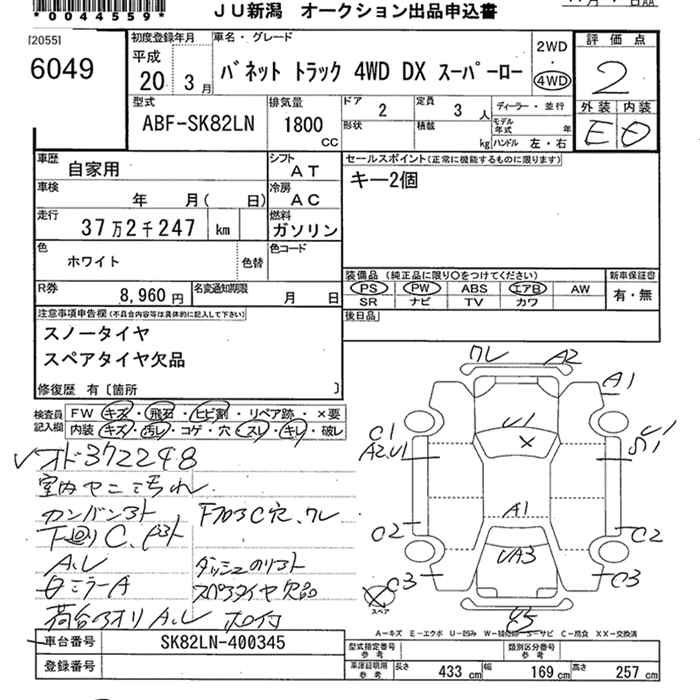 *0044559*
JU新潟 オークション出品申込書
[2055]
6049
初度登録年月
平成
20 3月
車名・グレード
バネット トラック 4WD DX スーパーロー
2WD
・
4WD
評価点
2
外装 内装
E D
型式
ABF-SK82LN
排気量
1800 CC
ドア 2
形状
定員 3 人
積載 kg
ディーラー・並行
モデル年式 年
ハンドル 左・右
車歴 自家用
シフト AT
車検 年 月( 日)
冷房 AC
走行 37万2千247 km
燃料 ガソリン
色 ホワイト
色替
色コード
R券 8,960円
名変通知期限 月 日
セールスポイント(正常に機能するものに限ります)
キー2個
装備品 (純正品に限り○をつけてください)
PS PW ABS エアB AW
SR ナビ TV カワ
新車保証書
有・無
後日品
注意事項申告欄(不具合内容等は具体的に記入して下さい)
スノータイヤ
スペアタイヤ欠品
修復歴 有〔箇所 〕
検査員記入欄
FW キズ・飛石・ヒビ割・リペア跡・×要
内装 キズ・汚レ・コゲ・穴・スレ・キレ・破レ
オド372248
室内ヤニ汚れ
カンバンアト
下廻りC、
A,U
ダッシュ
ミラーA
スペアタイヤ欠品
荷台アオリA,U
ワレ A2
A1
U1
C1
A2,U1
×
A1
C2 C2
UA3
C3 C3
スペア
A−キズ E−エクボ U−凹み W−補修跡 S−サビ C−腐食 XX−交換済
車台番号 SK82LN-400345
登録番号
型式指定番号
参考
類別区分番号
参考
車庫証明用
参考
長さ 433 cm 幅 169 cm 高さ 257 cm